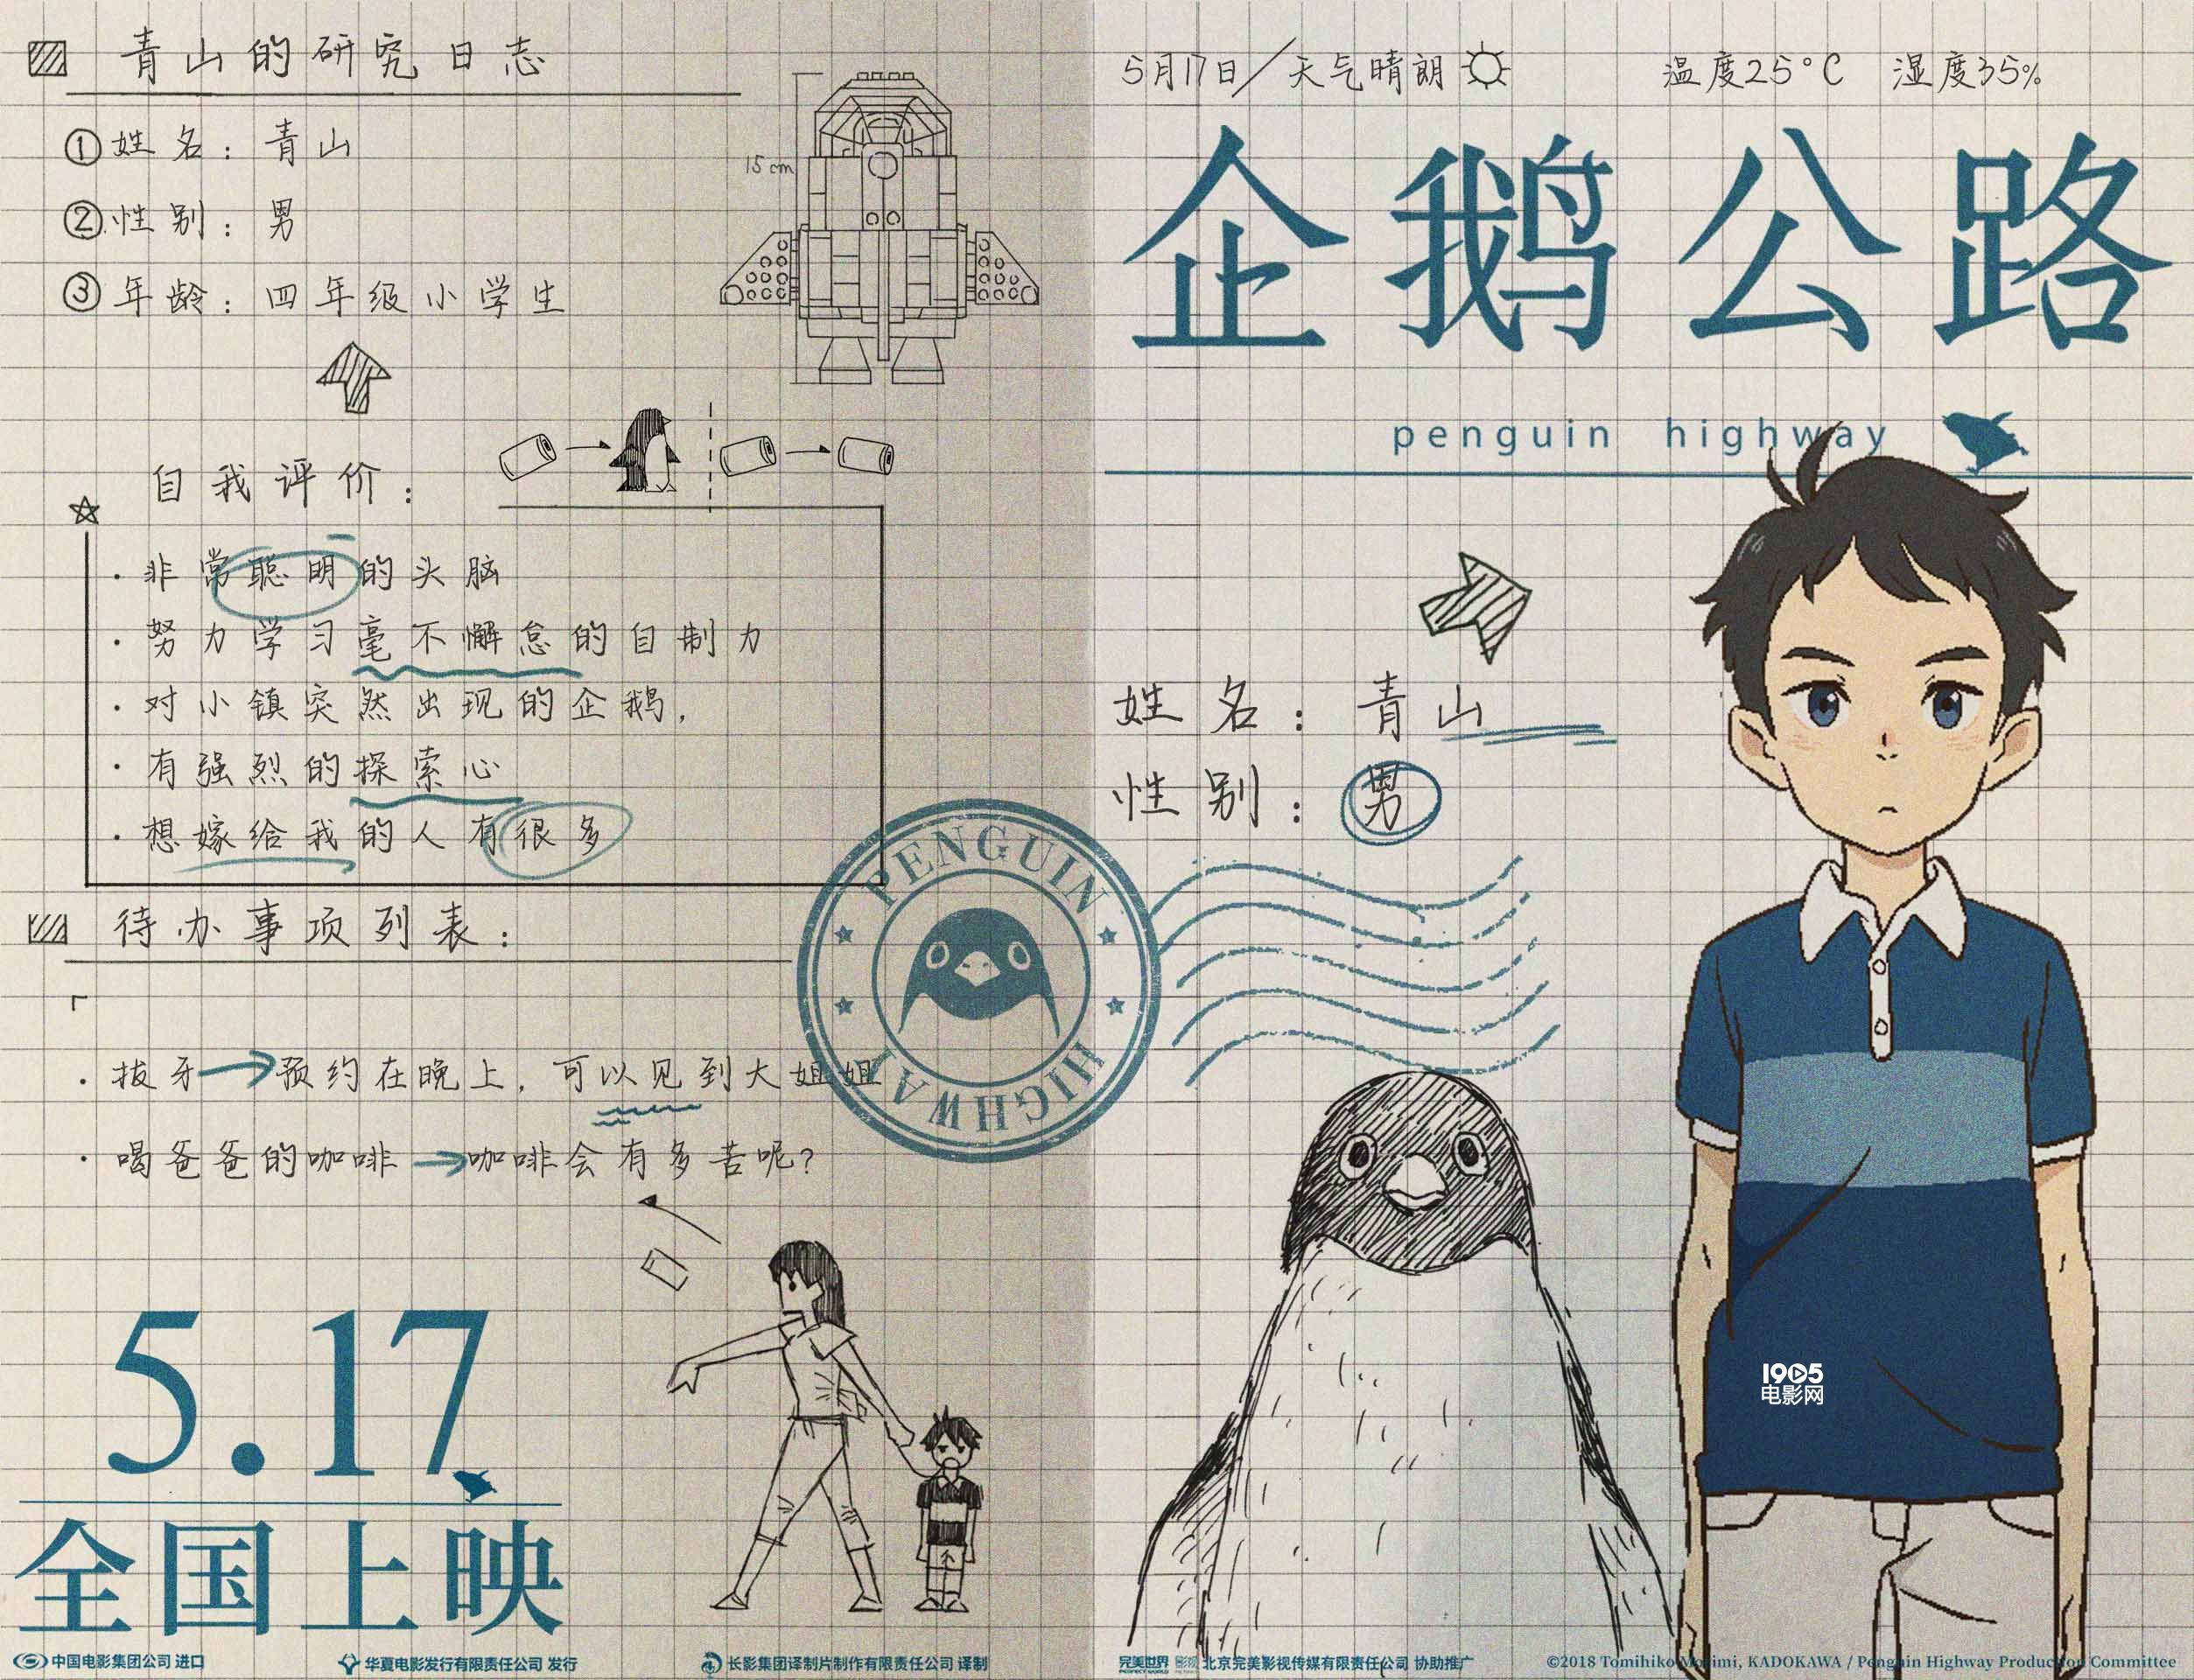 青山的研究日志
①姓名：青山
②性别：男
③年龄：四年级小学生
15cm
自我评价：
·非常聪明的头脑
·努力学习毫不懈怠的自制力
·对小镇突然出现的企鹅，
·有强烈的探索心
·想嫁给我的人有很多
待办事项列表：
·拔牙→预约在晚上，可以见到大姐姐
·喝爸爸的咖啡→咖啡会有多苦呢？
PENGUIN
HIGHWAY
5.17
全国上映
5月17日/天气晴朗
温度25°C 湿度35%
企鹅公路
penguin highway
姓名：青山
性别：男
1905
电影网
中国电影集团公司 进口
华夏电影发行有限责任公司 发行
长影集团译制片制作有限责任公司 译制
完美世界 影视
PERFECT WORLD
北京完美影视传媒有限责任公司 协助推广
©2018 Tomihiko Morimi, KADOKAWA / Penguin Highway Production Committee